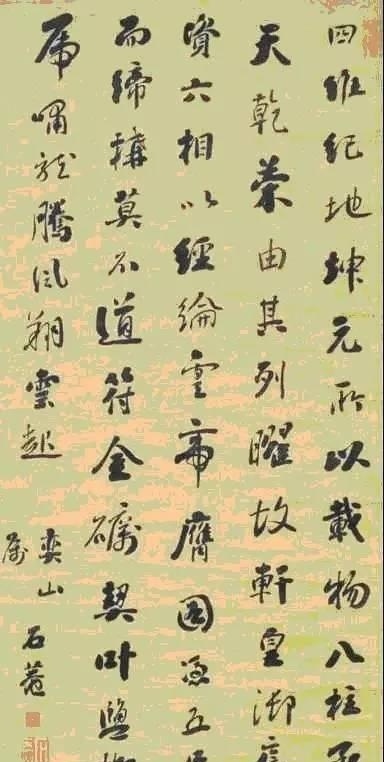 四維紀地坤元所以載物八柱承
天乾象由其列曜故軒皇御
資六相以經綸虞帝膺圖憑五
而締構莫不道符金礪契叶鹽
虎嘯龍騰風翔雲起
奕山
屬
石菴